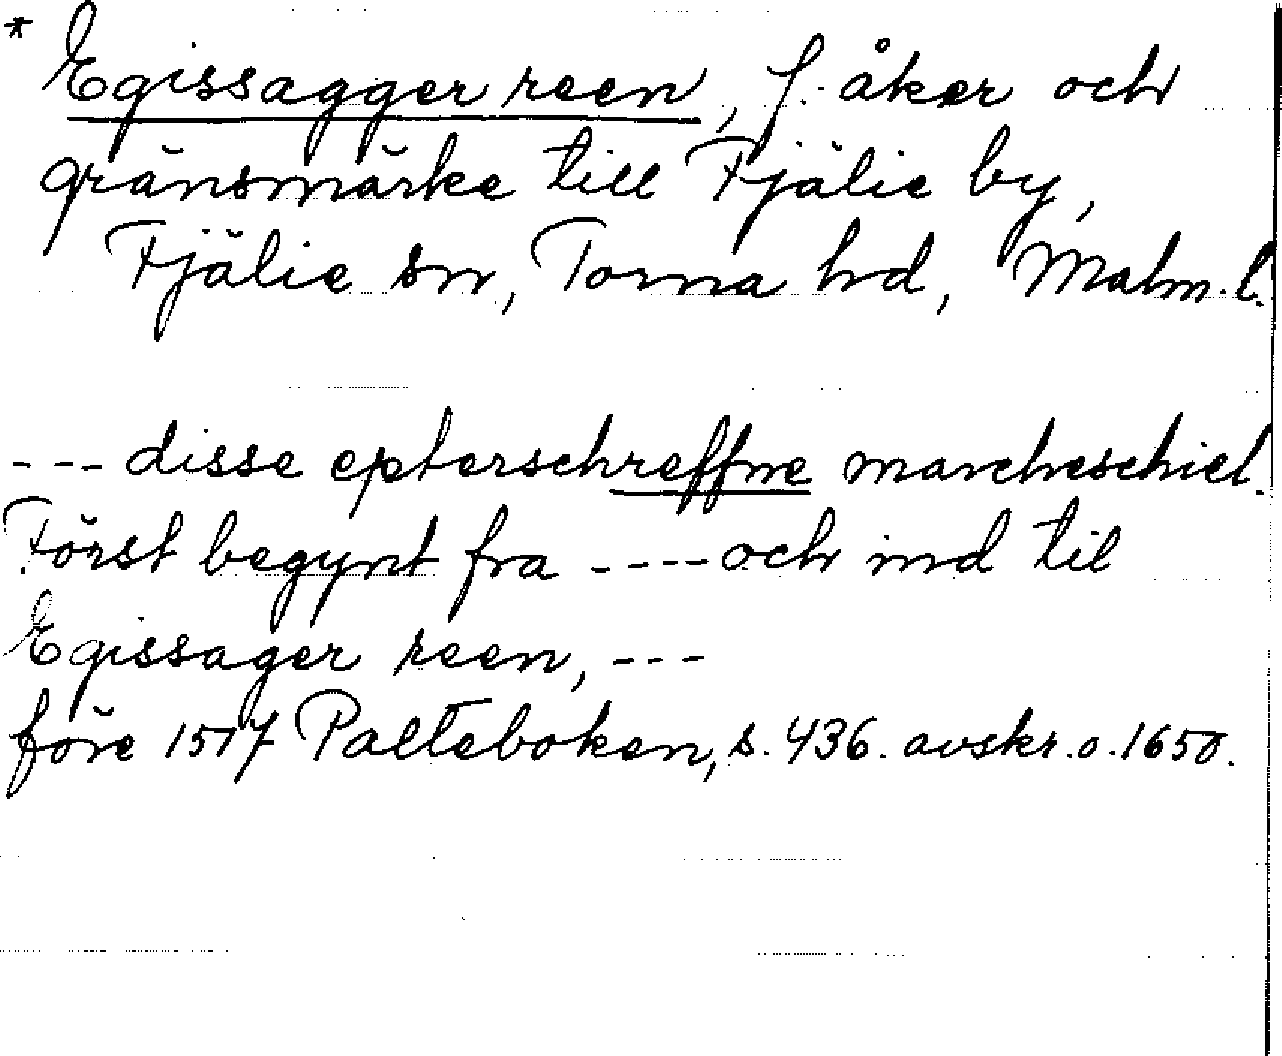 * Egissagger reen, f. åker och
gränsmärke till Fjälie by,
Fjälie sn, Torna hd, Malm. l.
--- disse epterschreffne marcheschiel.
Först begynt fra ---- och ind til
Egissager reen, ---
före 1517 Palteboken, s. 436. avskr. o. 1650.